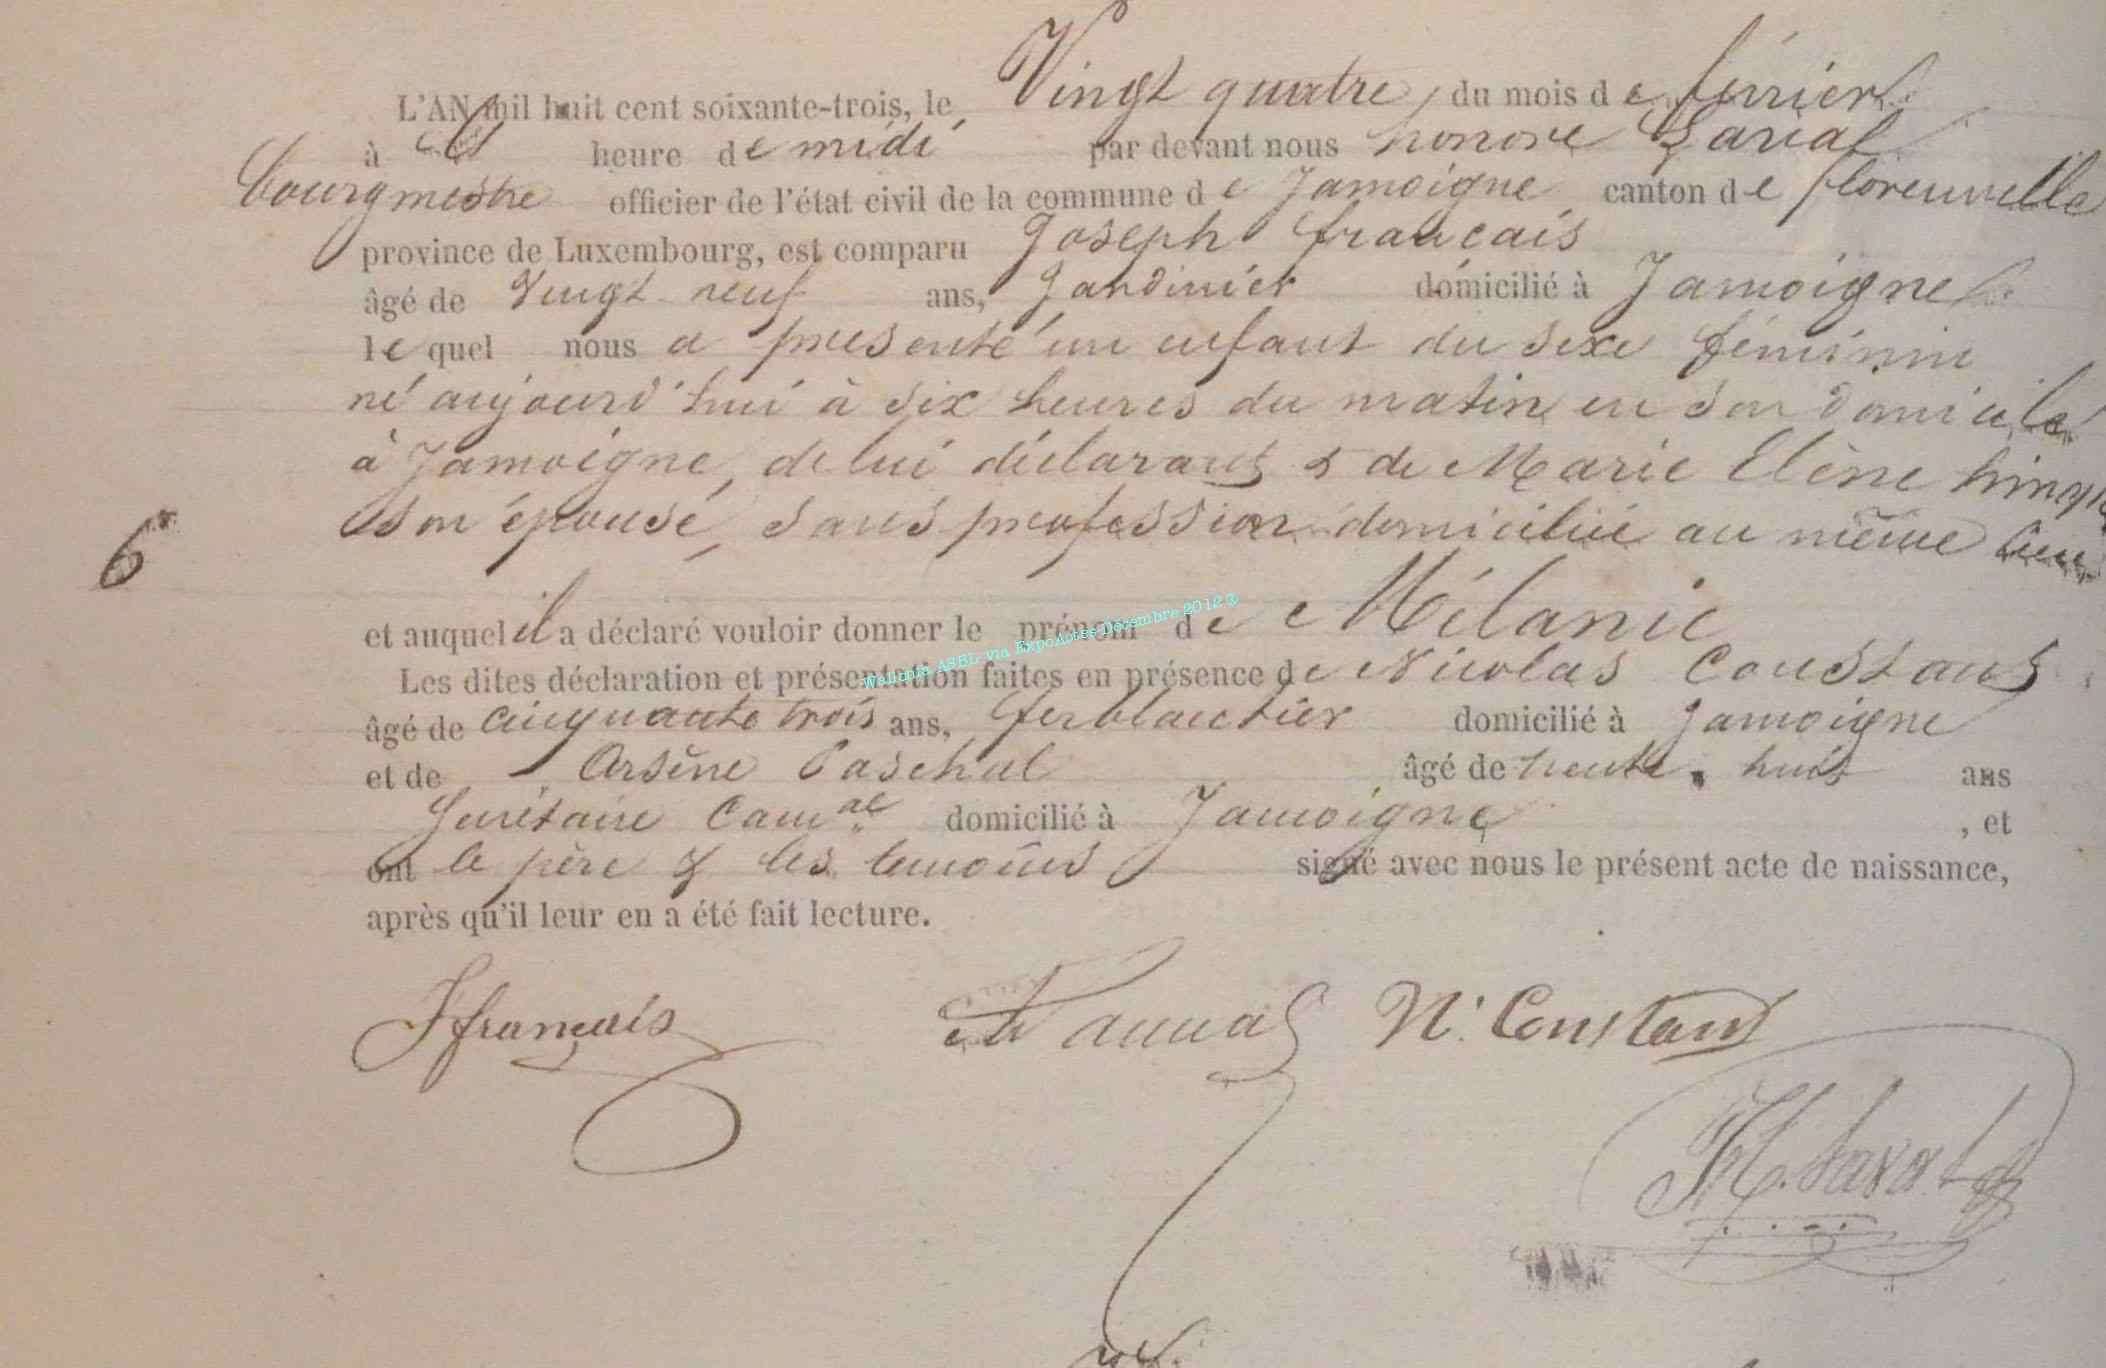 L'AN mil huit cent soixante-trois, le Vingt quatre, du mois de février
à heure de midi par devant nous honoré
bourgmestre officier de l'état civil de la commune de Jamoigne canton de florenville
province de Luxembourg, est comparu Joseph français
âgé de Vingt neuf ans, Jardinier domicilié à Jamoigne
lequel nous a présenté un enfant du sexe féminin
né aujourd'hui à six heures du matin en son domicile
à Jamoigne, de lui déclarant & de Marie Elène
son épouse, sans profession domiciliée au même lieu
6
et auquel il a déclaré vouloir donner le prénom de Mélanie
Wallonia ASBL via ExpoActes Décembre 2012 ®
Les dites déclaration et présentation faites en présence de Nicolas Constant
âgé de cinquante trois ans, ferblantier domicilié à Jamoigne
et de Arsène Paschal âgé de trente huit ans
Secrétaire Comal domicilié à Jamoigne, et
ont le père & les témoins signé avec nous le présent acte de naissance,
après qu'il leur en a été fait lecture.
J français N. Constant